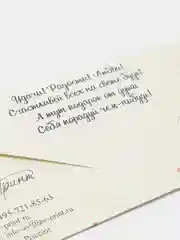 Удачи! Радости! Любви!
Счастливей всех на свете будь!
А тут подарок от души
Себя порадуй чем-нибудь!
Принт
495-721-85-63
-print.ru
-print.ru
Россия